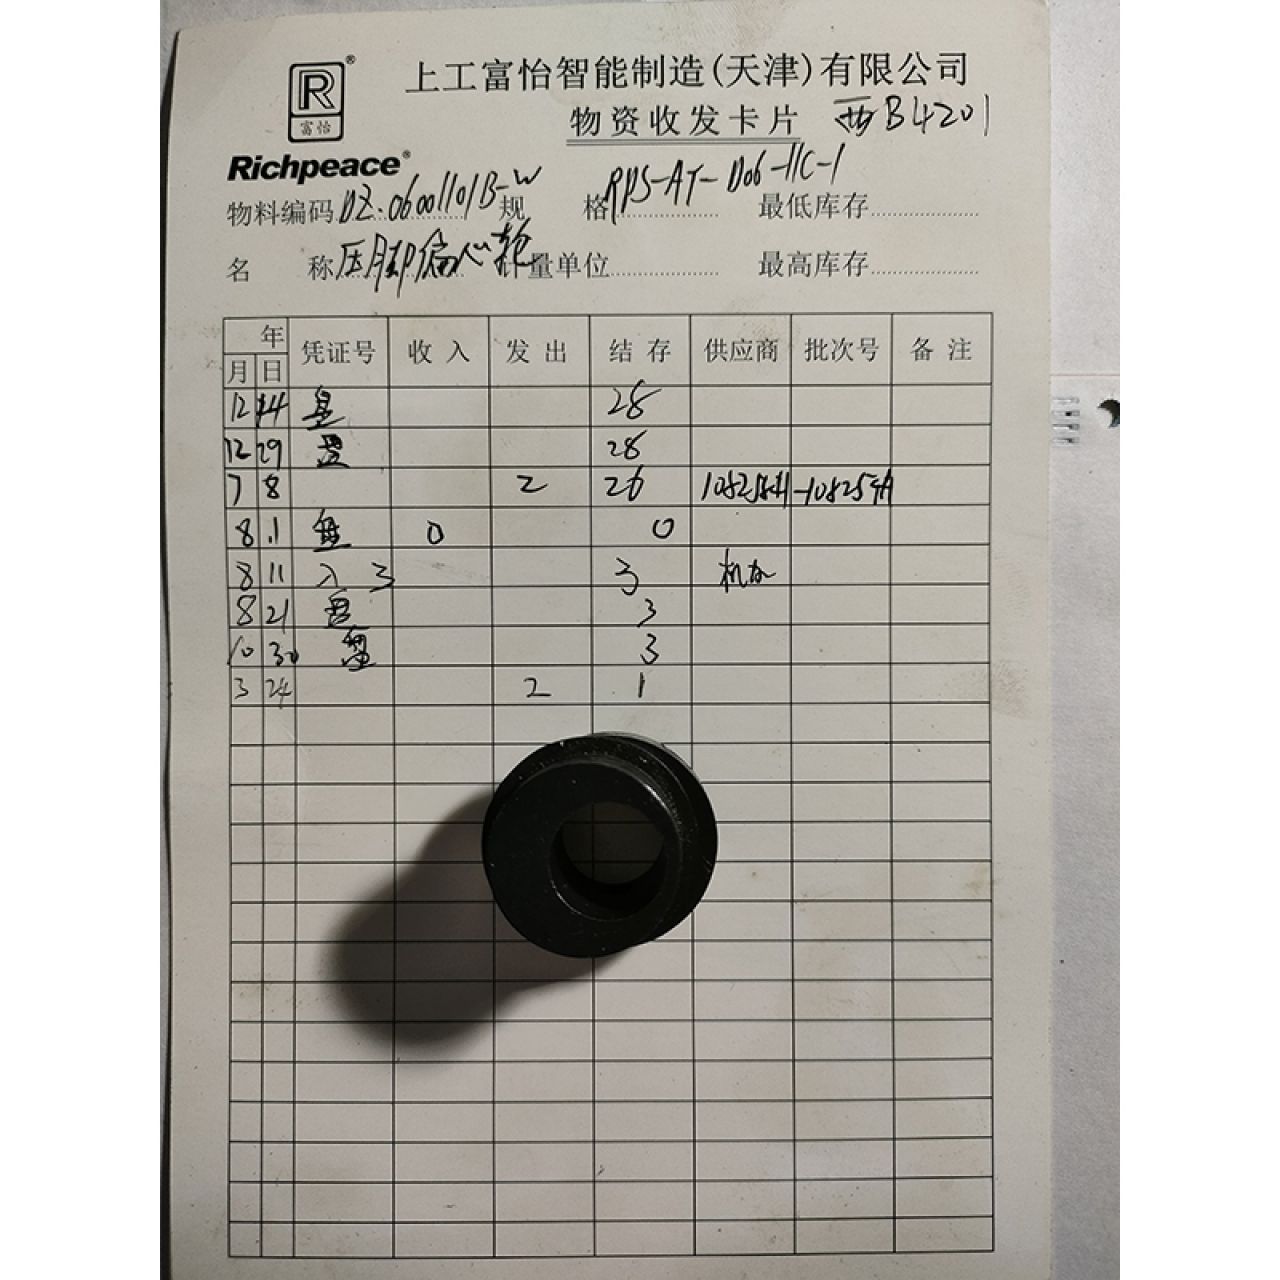 R®
富怡
Richpeace®
上工富怡智能制造(天津)有限公司
物资收发卡片 西B4201
物料编码 DZ.06001101B-W 规 格 RPS-AT-D06-11C-1 最低库存
名 称 压脚偏心轮 计量单位 最高库存
年
月 日 凭证号 收 入 发 出 结 存 供应商 批次号 备 注
12 14 盘 28
12 29 盘 28
7 8 2 26 -108254A
8 .1 盘 0 0
8 11 入 3 3
8 21 盘 3
10 30 盘 3
3 24 2 1